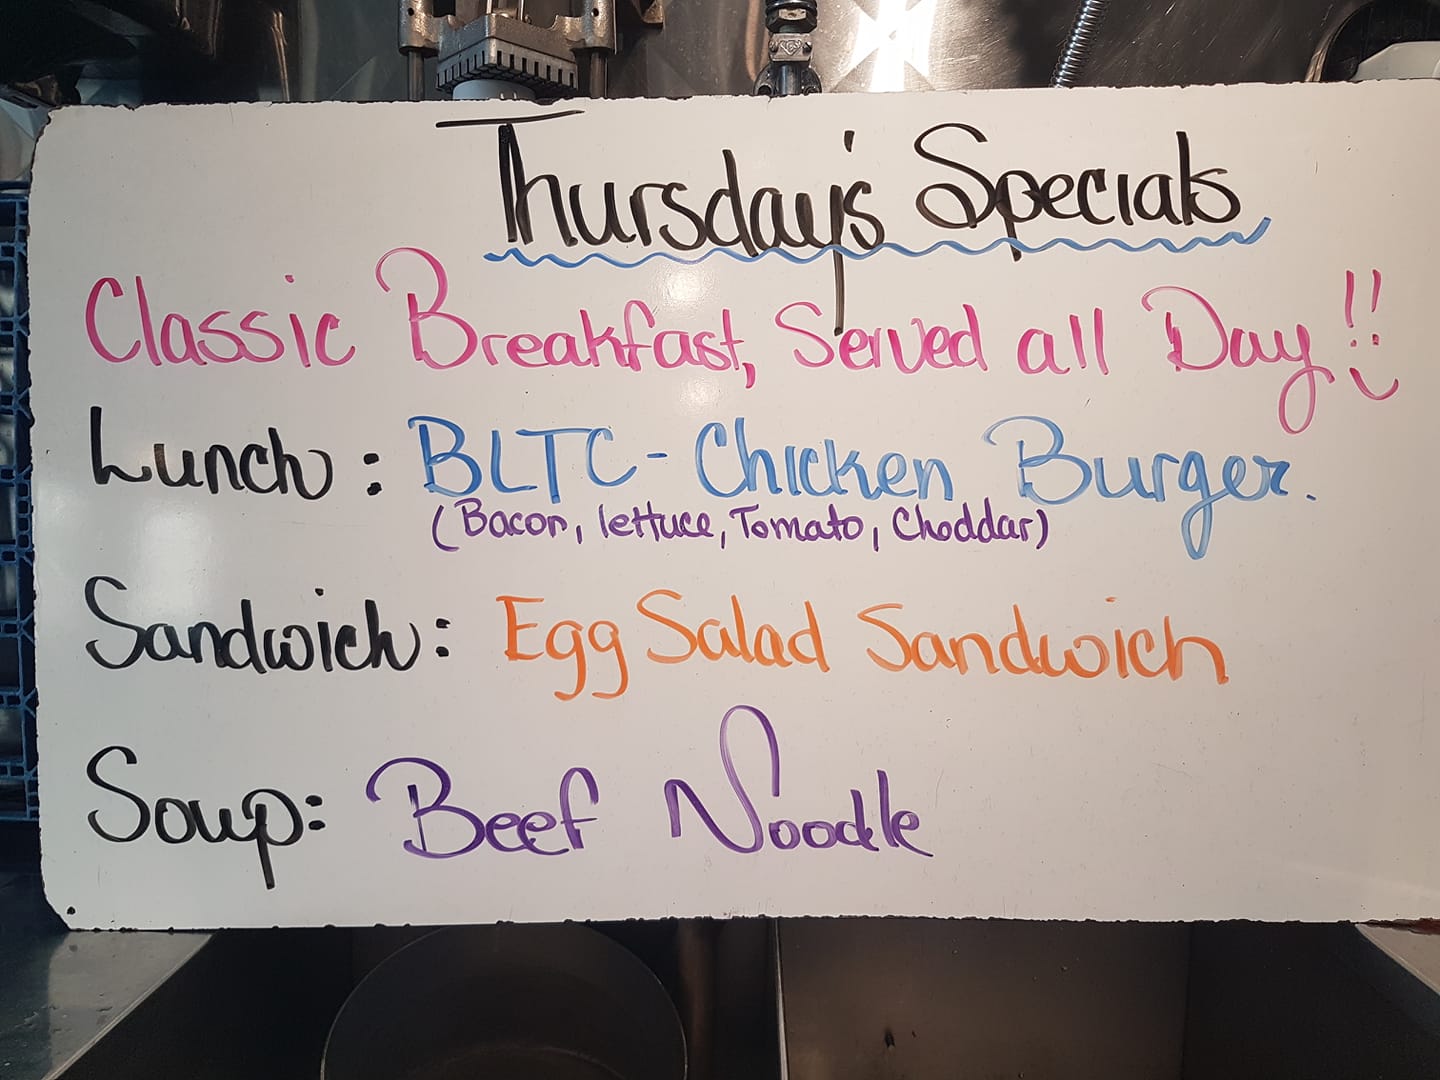 Thursday's Specials
Classic Breakfast, Served all Day!!
Lunch: BLTC - Chicken Burger.
(Bacon, lettuce, Tomato, Cheddar)
Sandwich: Egg Salad Sandwich
Soup: Beef Noodle